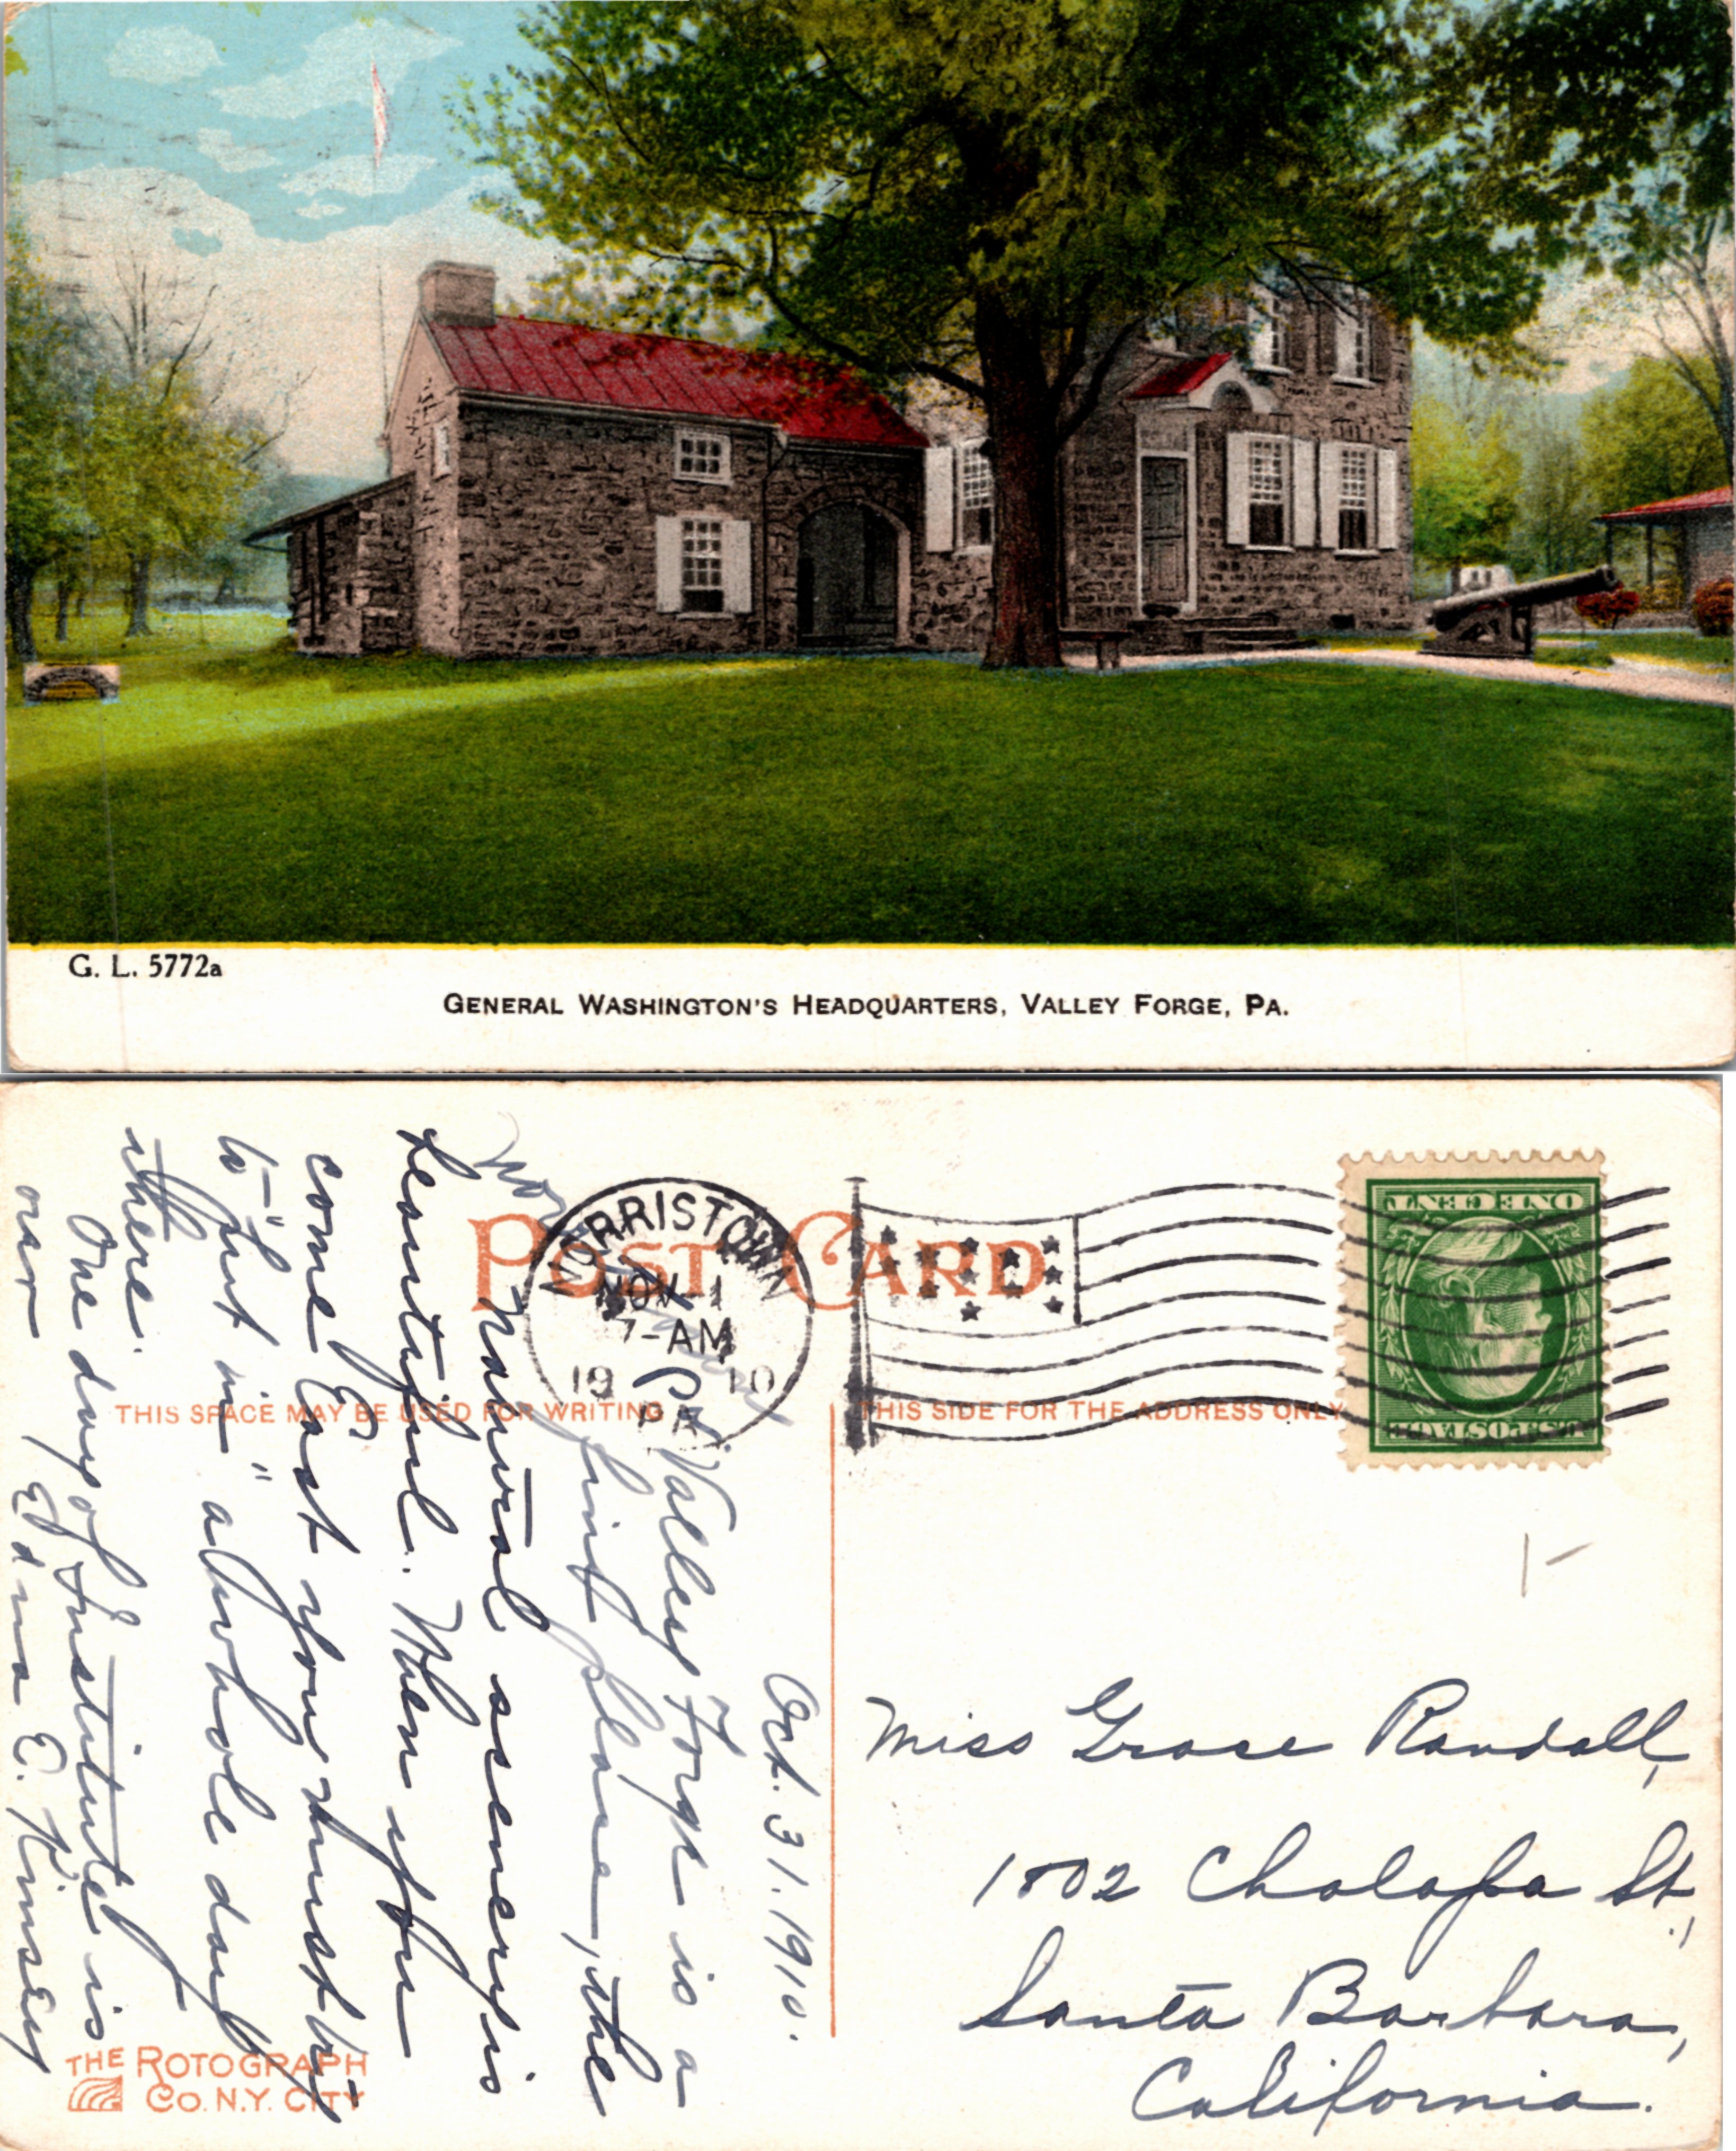 G. L. 5772a
GENERAL WASHINGTON'S HEADQUARTERS, VALLEY FORGE, PA.
POST CARD
NORRISTOWN
NOV 1
7-AM
1910
PA.
ONE CENT
U.S. POSTAGE
THIS SPACE MAY BE USED FOR WRITING
THIS SIDE FOR THE ADDRESS ONLY
Oct. 31. 1910.
Valley Forge is a
fine place, the
natural scenery is
beautiful. When you
come East you must try
to "put in" a whole day
there.
One day of Institute is
over
Edna E. Kimsey
Miss Grace Randall,
1802 Chalapa St.,
Santa Barbara,
California.
THE ROTOGRAPH
CO. N.Y. CITY